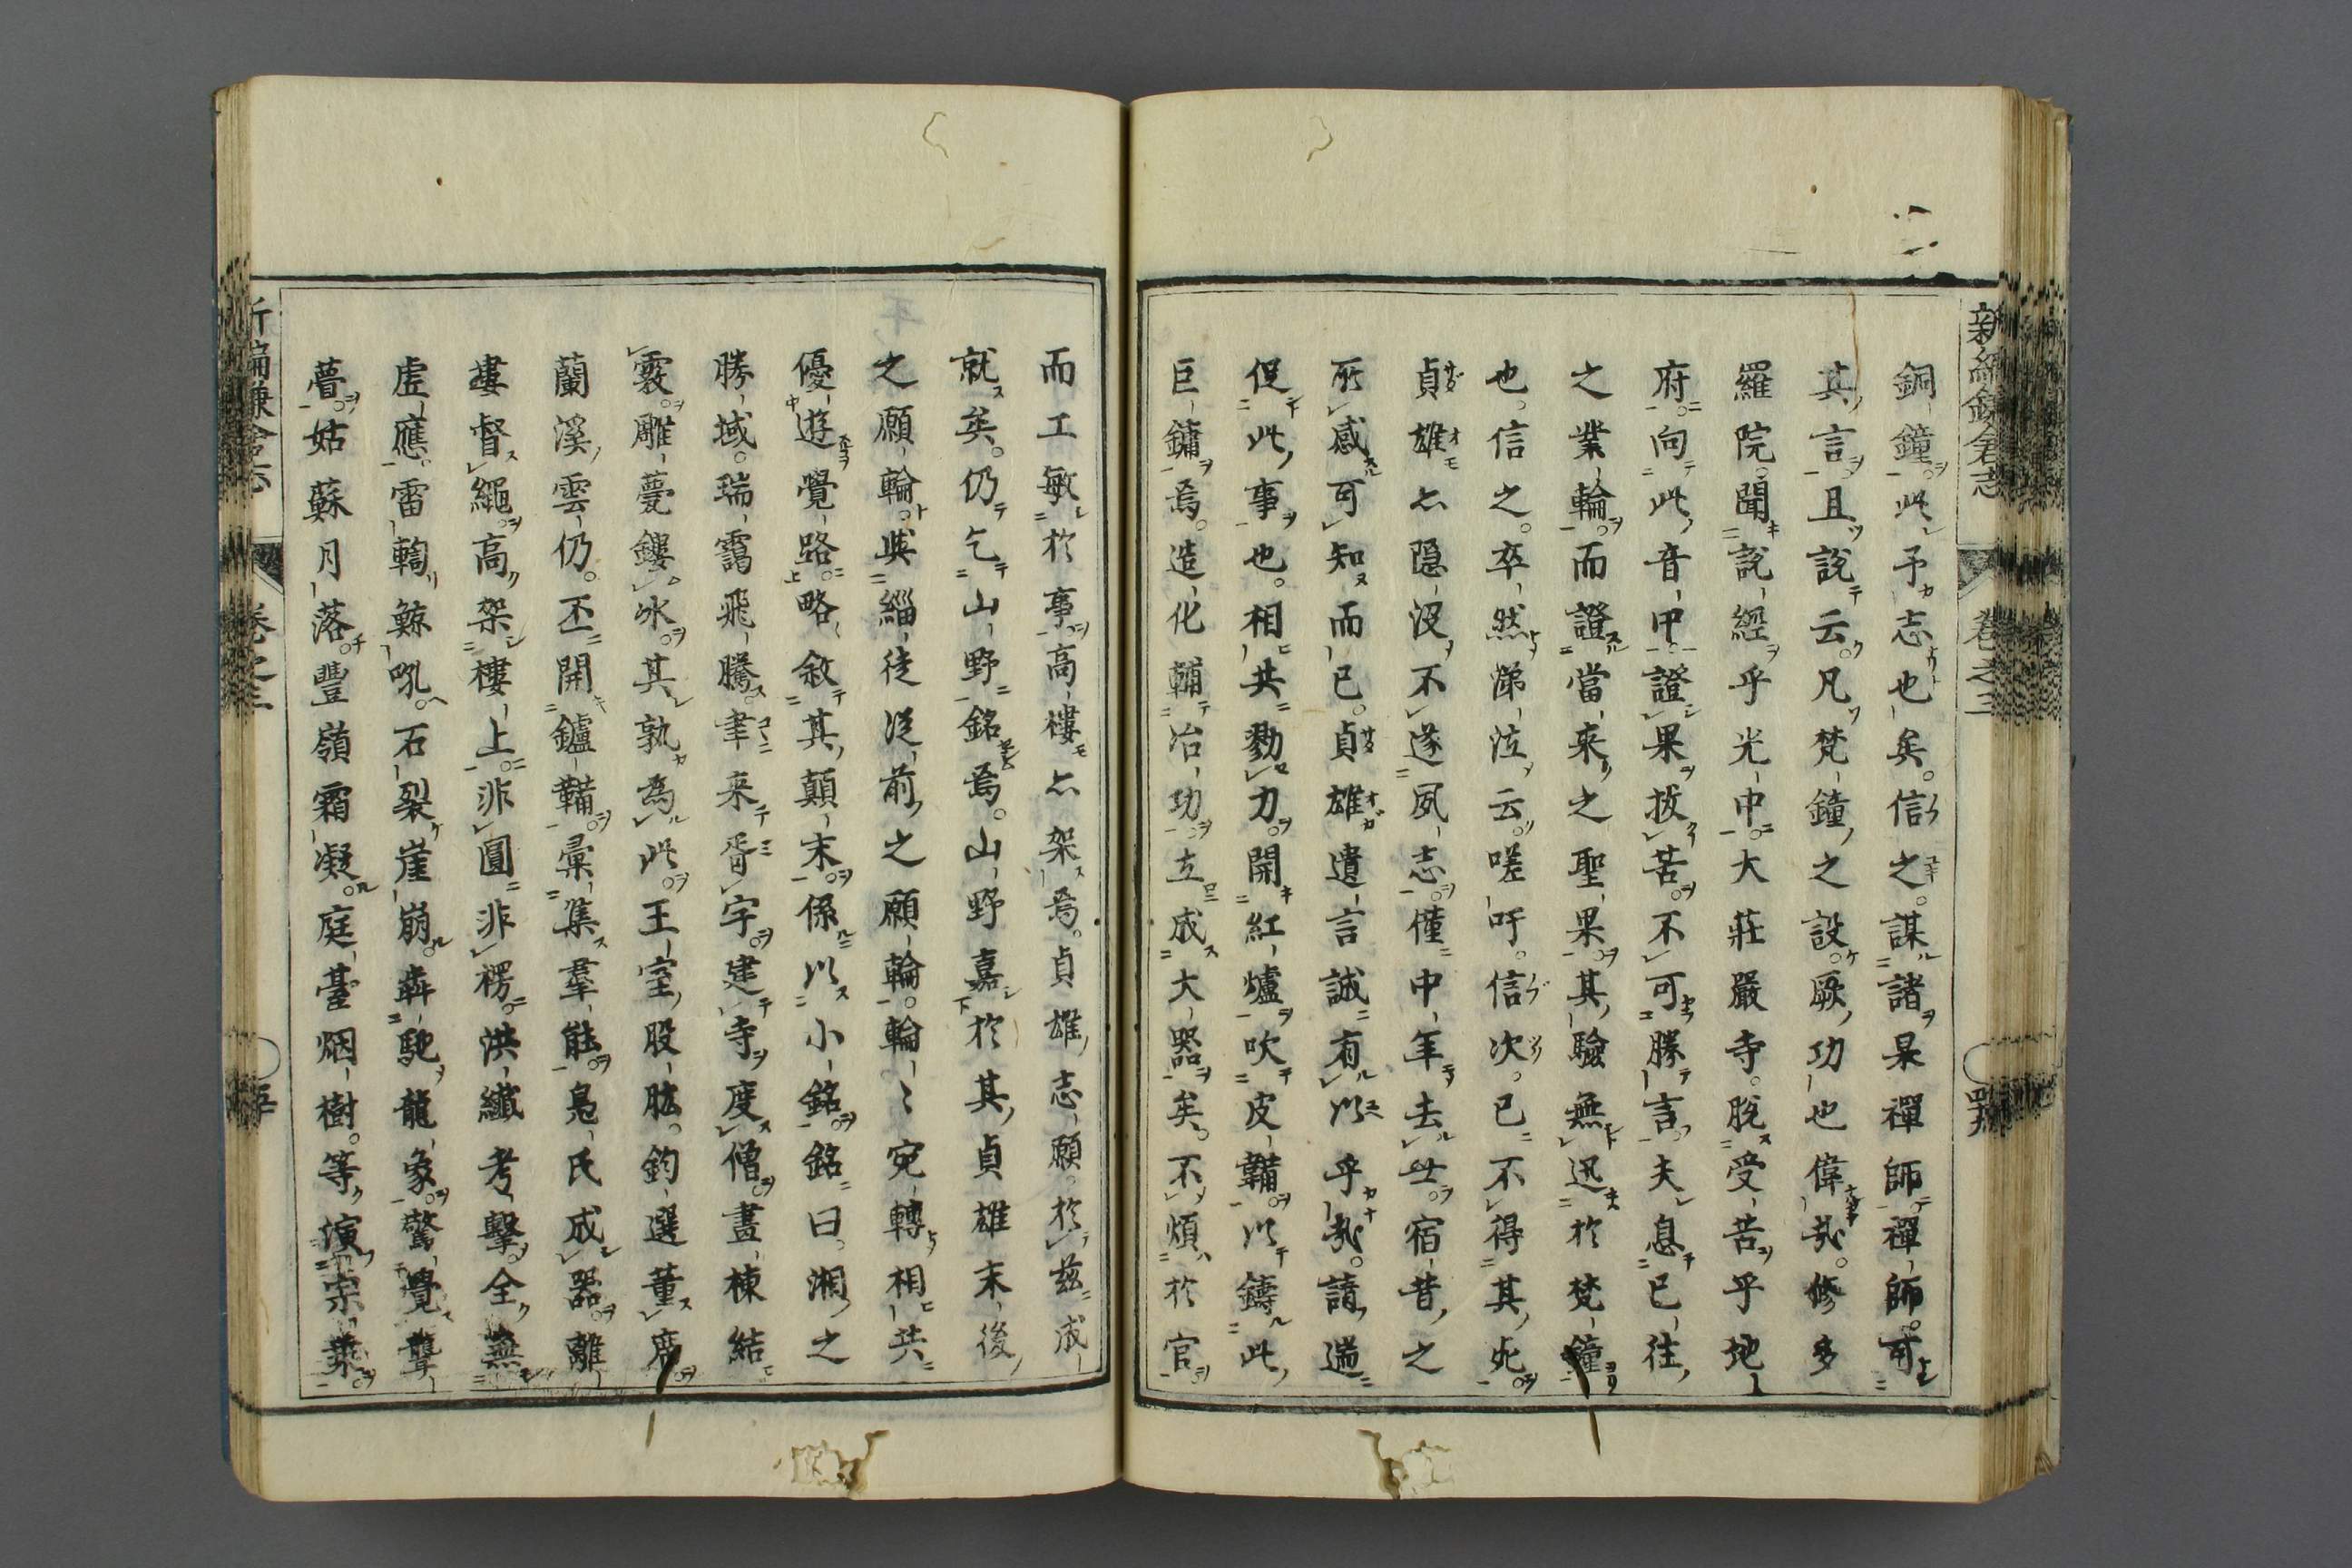 新編鎌倉志 卷之三
銅鐘此予志也矣信之謀諸杲禪師禪師可
其言且說云凡梵鐘之設厥功也偉哉修多
羅院聞說經乎光中大莊嚴寺脫受苦乎地
府向此音中證果拔苦不可勝言夫息已往
之業輪而證當來之聖果其驗無迅於梵鐘
也信之卒然涕泣云嗟吁信次已不得其死
貞雄亦隱沒不遂夙志僅中年去世宿昔之
所感可知而已貞雄遺言誠有以乎哉請遄
促此事也相共勠力開紅爐吹皮鞴以鑄此
巨鏞焉造化輔冶功立成大器矣不煩於官
而工敏於事高樓亦架焉貞雄志願於茲成
就矣仍乞山野銘焉山野嘉於其貞雄末後
之願輪與緇徒從前之願輪輪〻宛轉相共
優遊覺路略敘其顛末係以小銘銘曰湘之
勝域瑞靄飛騰聿来胥宇建寺度僧畫棟結
霧雕甍鏤冰其孰為此王室股肱鈞選董席
蘭溪雲仍丕開鑪鞴橐集羣能鳧氏成器離
婁督繩高架樓上非圓非楞洪纖考擊全無
虛應雷輷鯨吼石裂崖崩犇馳龍象驚覺聾
瞢姑蘇月落豐嶺霜凝庭臺烟樹等演宗乘
卷之三